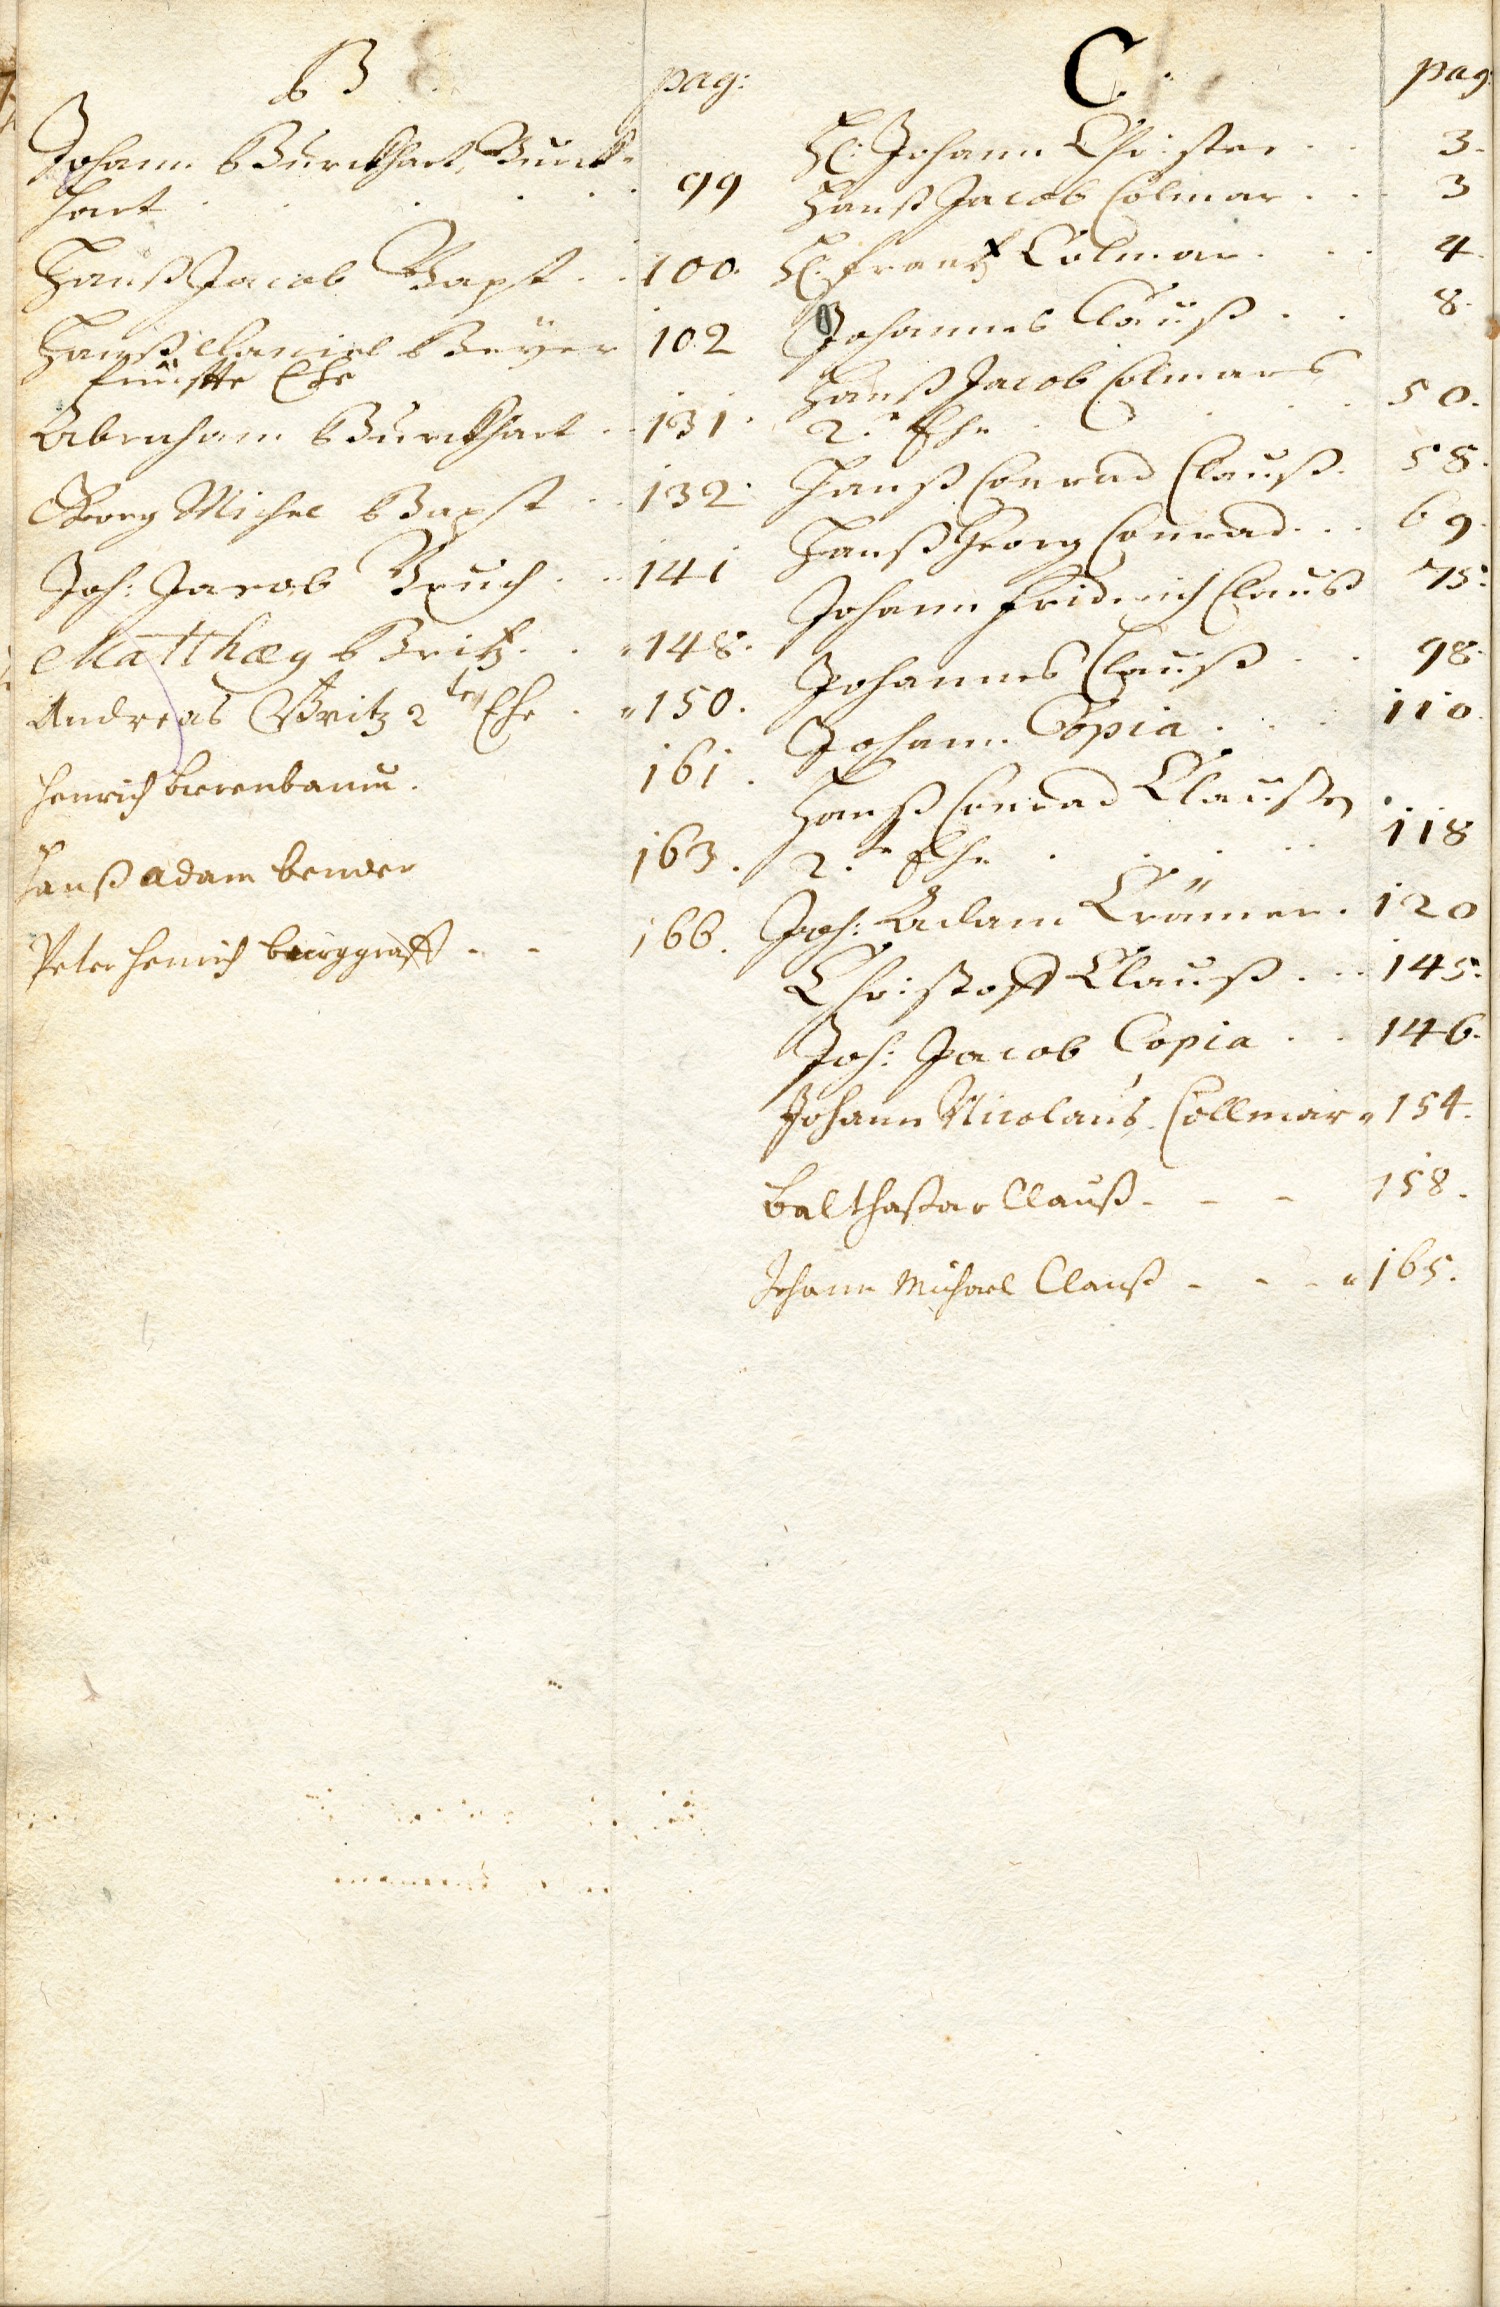 B
pag:
Johann Burckhart Burck-
hart . . . . . 99
Hanß Jacob Bapst . . 100.
Hanß Daniel Beyer 102
fünffte Ehe
Abraham Burckhart . . 131.
Georg Michel Bapst . . 132.
Joh: Jacob Bruch . . 141
Matthæy Britz . . 148.
Andreas Britz 2te Ehe . 150.
Henrich Bierenbaum. 161.
Hanß Adam bender 163.
Peter Henrich burggraff - - 166.
C.
pag:
H: Johann Christer . . 3.
Hanß Jacob Colmar . . 3
H: Frantz Colmar . . . 4.
Johannes Clauß . . 8.
Hanß Jacob Colmars
2.te Ehe . . . . 50.
Hanß Conrad Clauß . 58.
Hanß Georg Conrad . . . 69.
Johann Friderich Clauß 75.
Johannes Clauß . . 98.
Johann Copia . . . 110.
Hanß Conrad Claußen
2.te Ehe . . . . 118
Joh: Adam Crämer . 120
Christoff Clauß . . . 145.
Joh: Jacob Copia . . 146.
Johann Nicolaus Collmar 154.
Balthaßar Clauß - - - 158.
Johann Michael Clauß - - - 165.